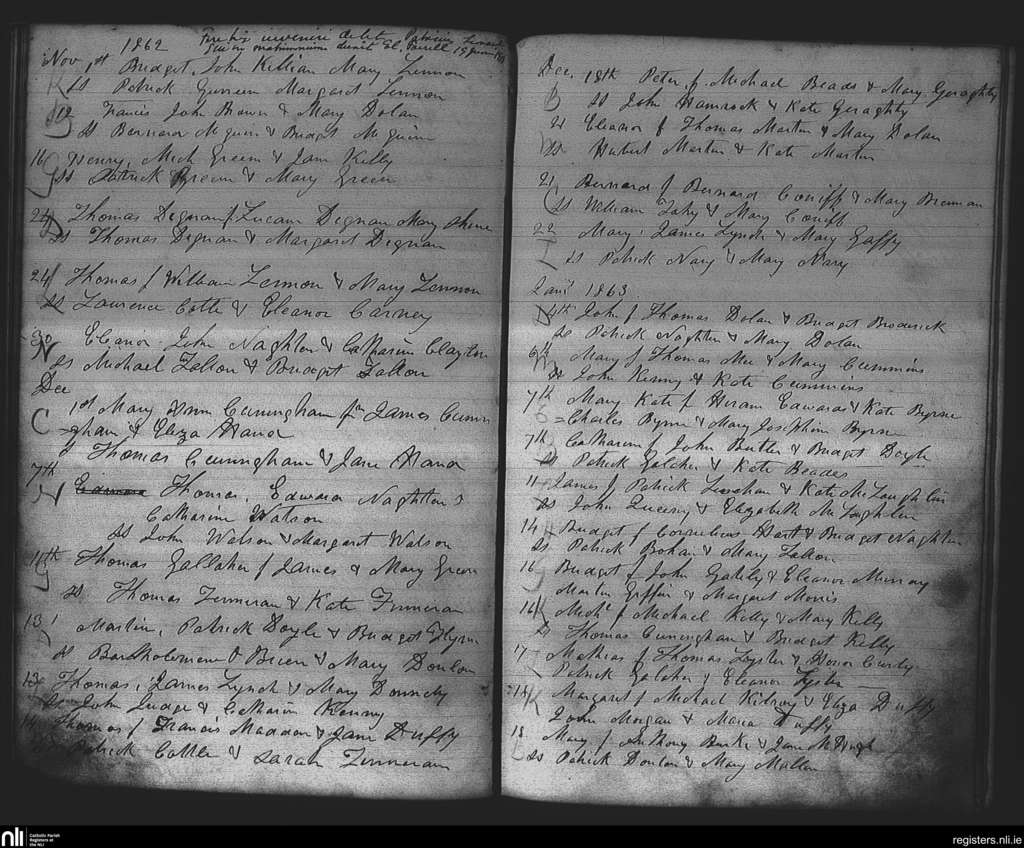 1862
Nov 1st Bridget, John Killian Mary Lennon
Ss Patrick Margaret Lennon
12 Francis John Brown & Mary Dolan
Ss Bernard McGuire & Bridget McGuire
16 Henry, Mich Green & Jane Kelly
Ss Patrick Green & Mary Green
24 Thomas Degnan f. Lucam Degnan Mary
Ss Thomas Degnan & Margaret Degnan
24 Thomas f William Lennon & Mary Lennon
Ss Laurence Cotte & Eleanor Carney
30 Eleanor John Naghten & Catharine Clayton
Ss Michael Fallon & Bridget Fallon
Dec
1st Mary Ann Cuningham James Cunin
=gham & Eliza
Thomas Cuningham & Jane
7th Thomas, Edward Naghten &
Catharine Watson
Ss John Watson & Margaret Watson
Thomas Gallaher f James & Mary Green
Ss Thomas Finneran & Kate Finneran
13 Martin, Patrick Doyle & Bridget Flynn
Ss Bartholomew O Brien & Mary Donlon
13 Thomas, James Lynch & Mary
Ss John Judge & Catharine Kenny
14 Thomas f Francis Maddon & Jane Duffy
Patrick Cotter & Sarah Finneran
Dec. 18th Peter f Michael Beades & Mary Geraghty
Ss John Hamrock & Kate Geraghty
21 Eleanor f Thomas Martin & Mary Dolan
Ss Hubert Martin & Kate Martin
21 Bernard f Bernard Coniff & Mary Brennan
Ss William Fahy & Mary Coniff
22 Mary, James Lynch & Mary Gaffy
Ss Patrick Nary & Mary Nary
1863
4th John f Thomas Dolan & Bridget Broderick
Ss Patrick Naghten & Mary Dolan
6th Mary f Thomas & Mary Cummins
Ss John Kenny & Kate Cummins
7th Mary Kate f Hiram Edwards & Kate Byrne
=Charles Byrne & Mary Josephine Byrne
7th Catharine f John Butler & Bridget Doyle
Ss Patrick Galcher & Kate Beades
11 James f Patrick & Kate McLoughlin
Ss John & Elizabeth McLoughlin
14 Bridget f Cornelius Hart & Bridget Naghten
Ss Patrick Bohan & Mary Fallon
16 Bridget f John & Eleanor Murray
Martin Griffin & Margaret Morris
16 Michl f Michael Kelly & Mary Kelly
Ss Thomas Cuningham & Bridget Kelly
17 Mathias f Thomas Lyster & Honor
Patrick Galcher & Eleanor Lyster
Margaret f Michael Kilroy & Eliza Duffy
John Morgan & Maria Duffy
18 Mary f Anthony Burke & Jane McHugh
Ss Patrick Donlon & Mary Mallon
nli
Catholic Parish
Registers at
the NLI
registers.nli.ie